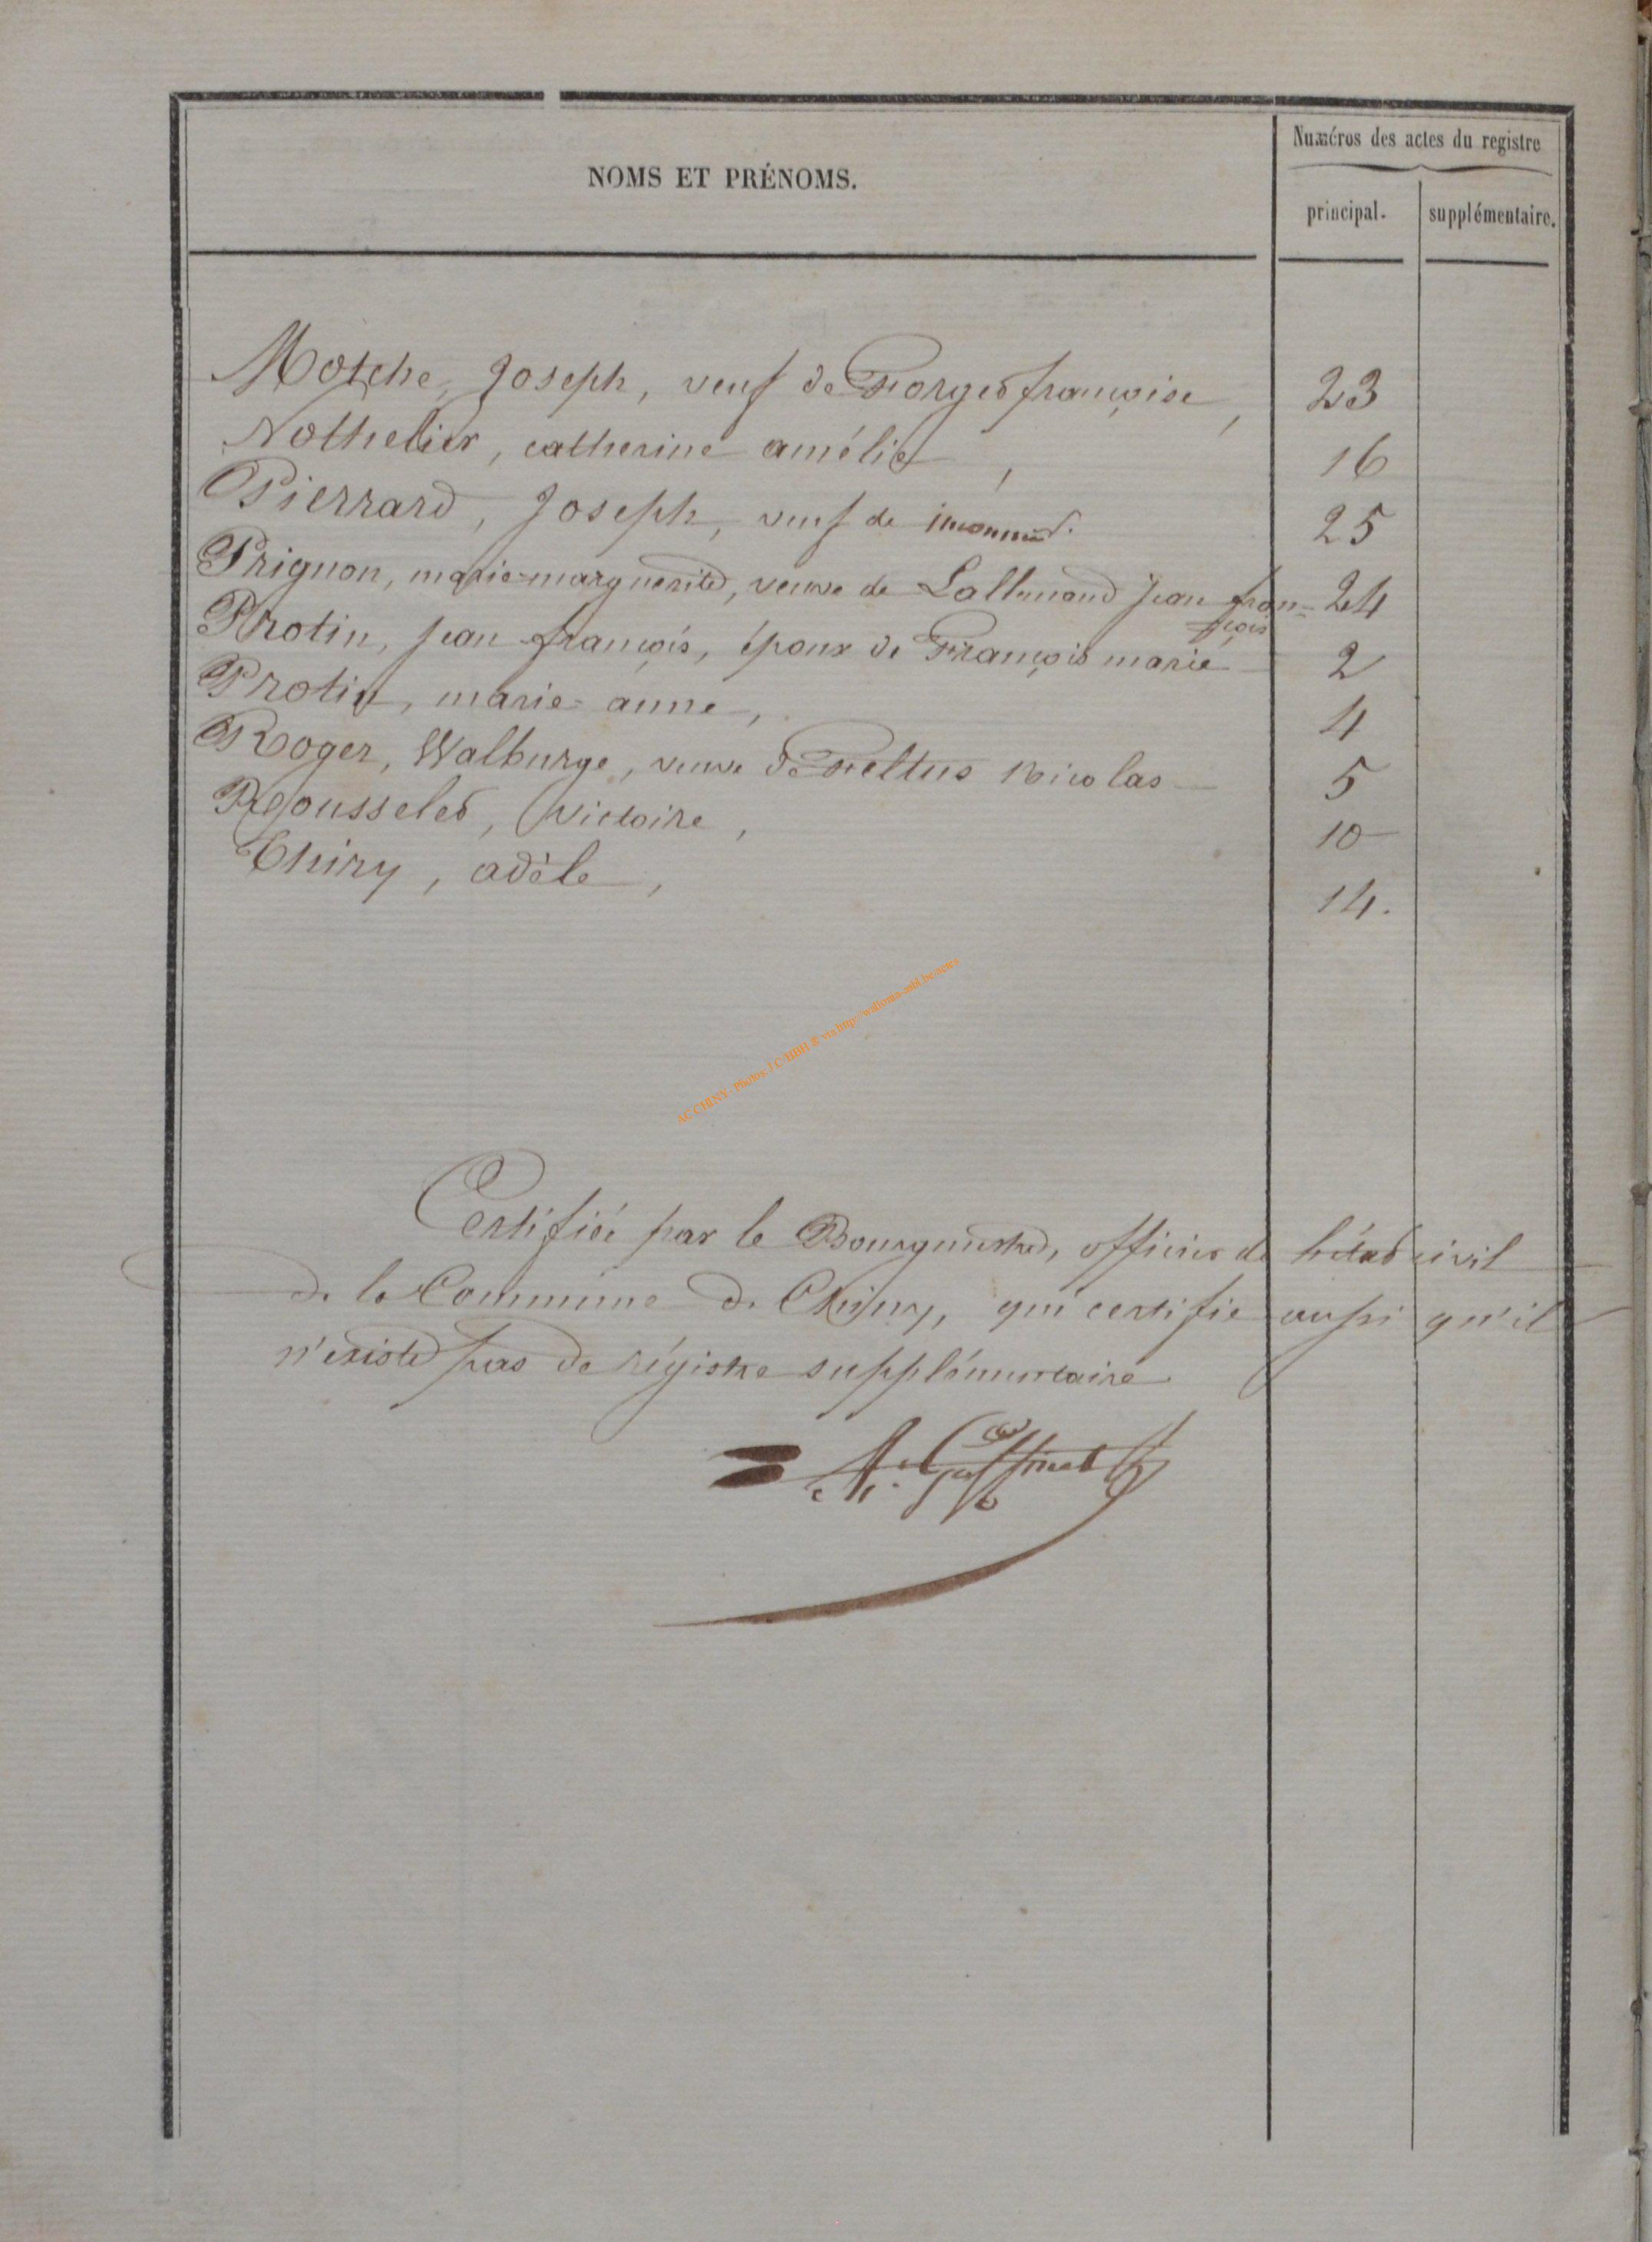 Numéros des actes du registre
NOMS ET PRÉNOMS.
principal. supplémentaire.
Motche, Joseph, veuf de Forged françoise, 23
Nothelier, catherine amélie, 16
Pierrard, Joseph, veuf de inconnue. 25
Prignon, marie-marguerite, veuve de Lallemand Jean fran= 24
çois
Protin, jean-françois, époux de François marie 2
Protin, marie-anne, 4
Roger, Walburge, veuve de Feltus Nicolas 5
Rousselet, Victoire, 10
Thiry, adèle, 14.
AC CHINY - Photos J C HBH ® via http://wallonia-asbl.be/actes
Certifié par le Bourgmestre, officier de l'état civil
de la Commune de Chiny, qui certifie aussi qu'il
n'existe pas de régistre supplémentaire